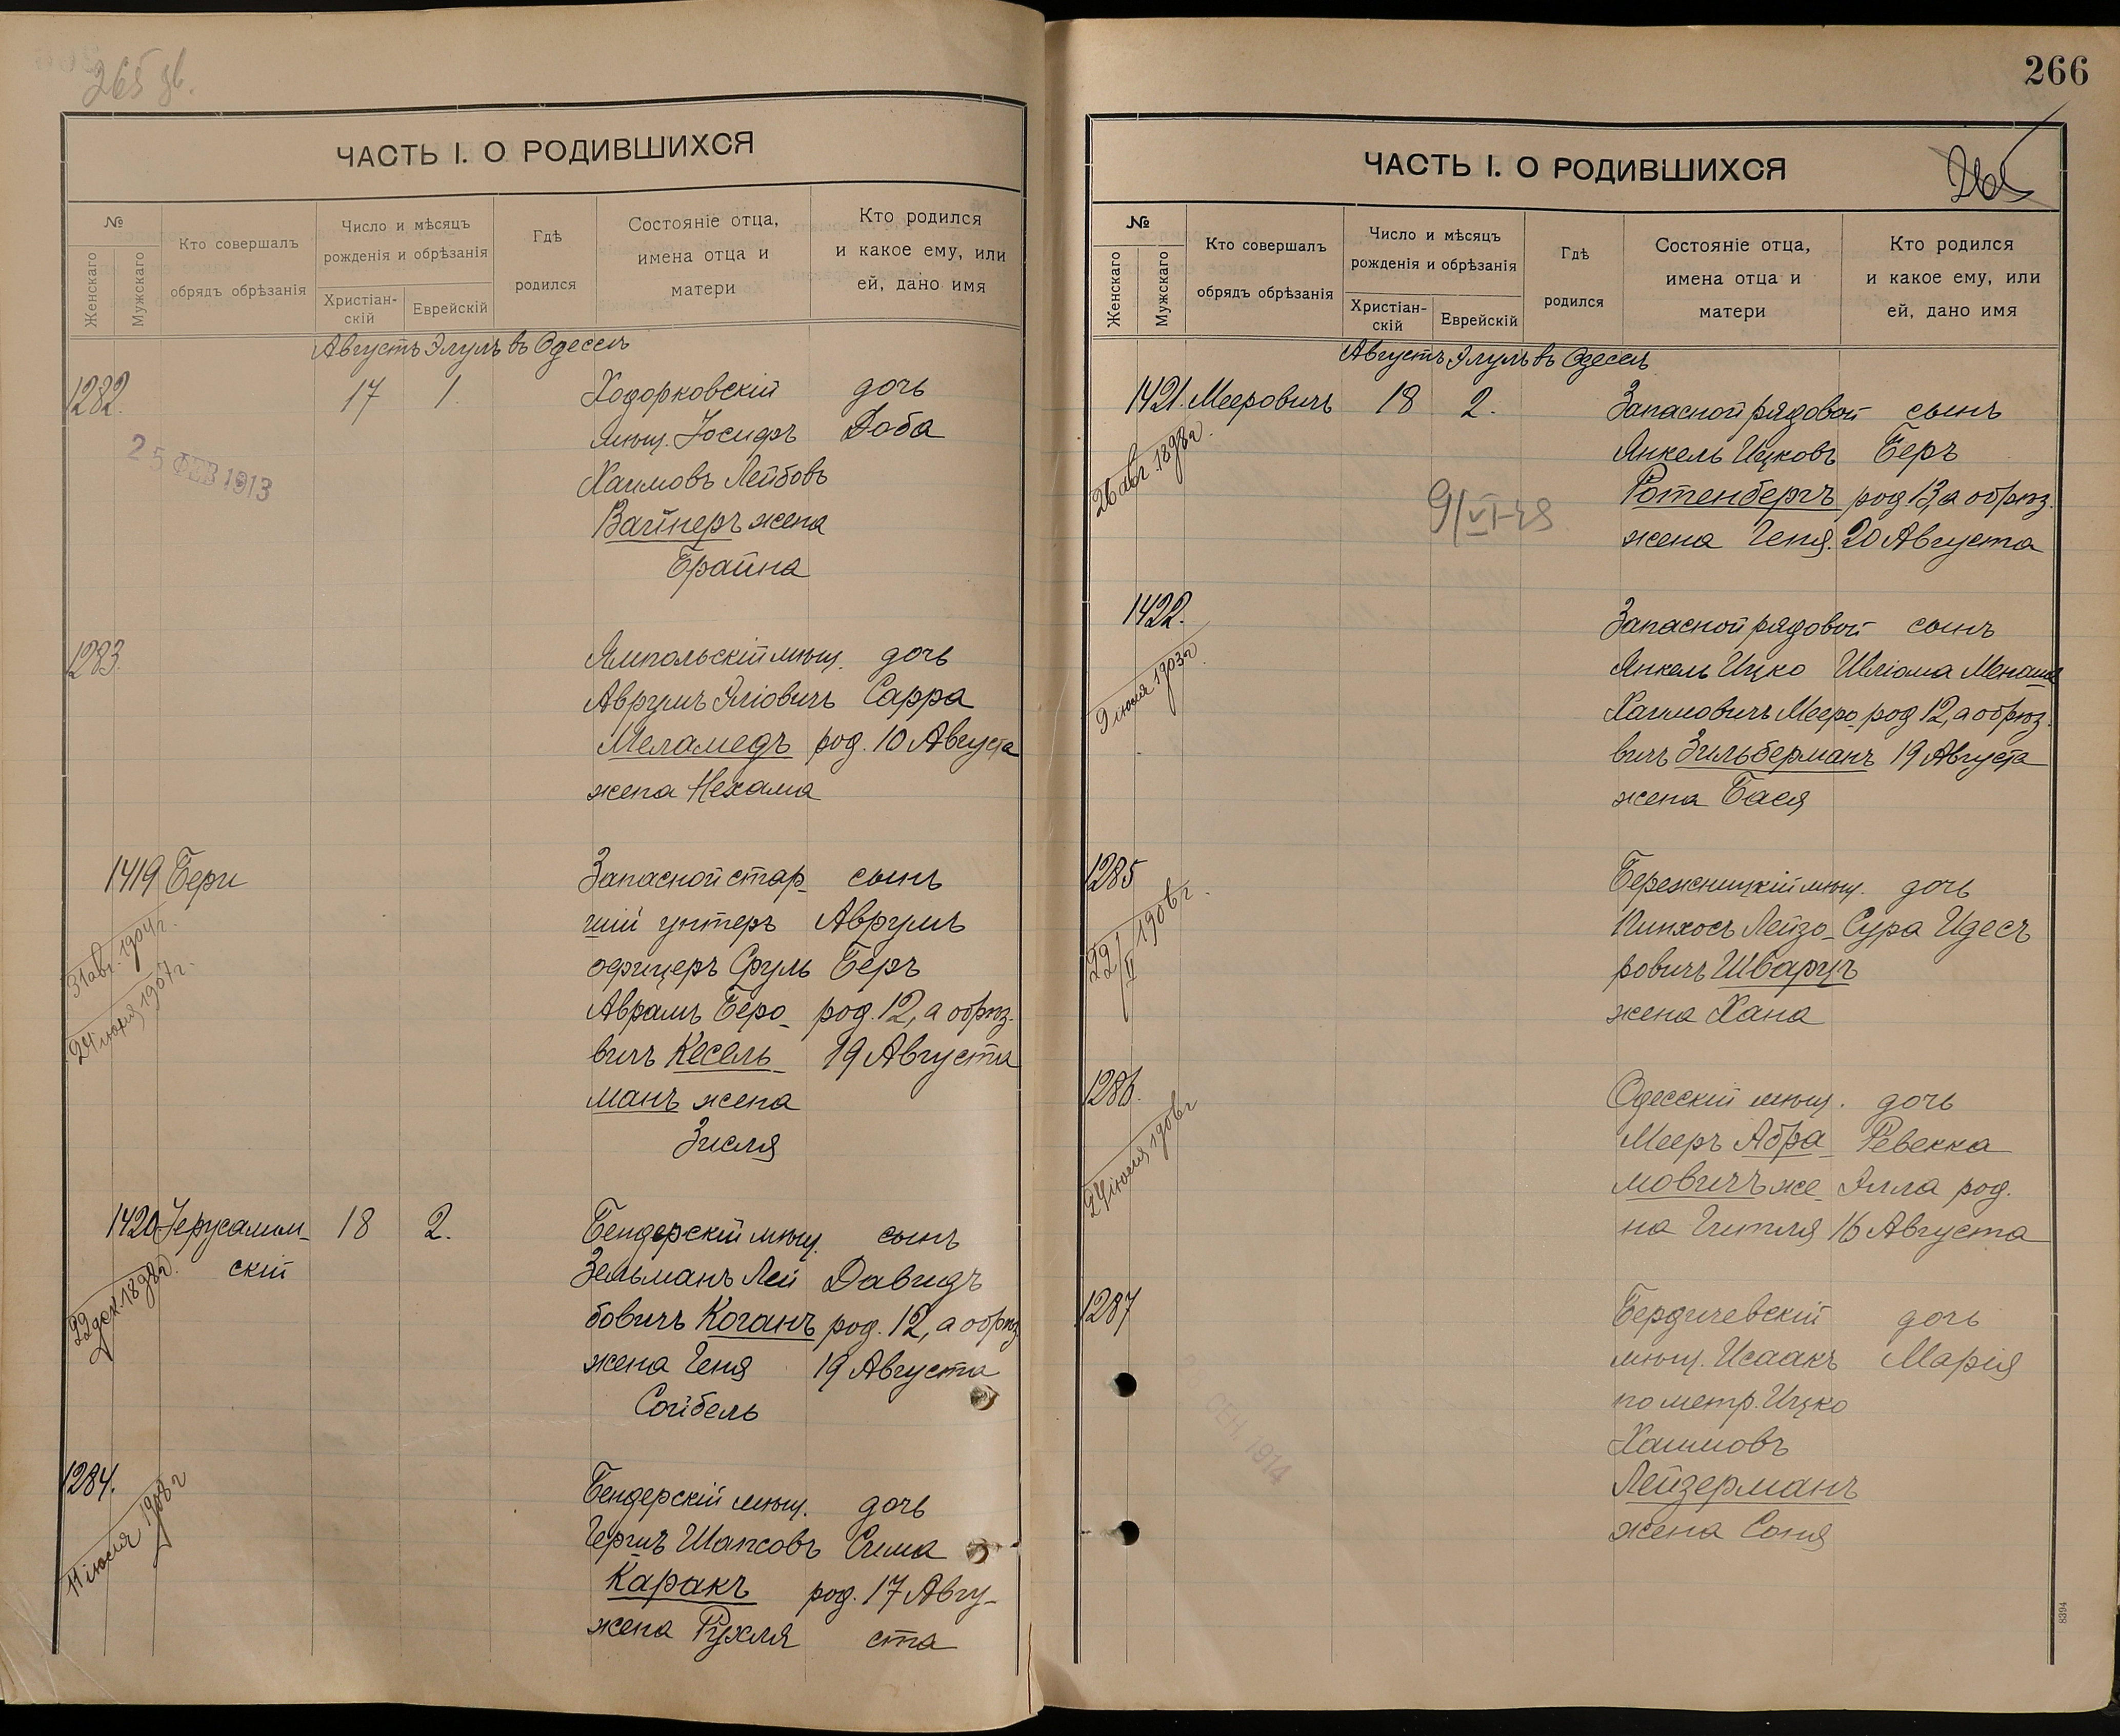 265 зв.
ЧАСТЬ I. О РОДИВШИХСЯ
№
Женскаго
Мужскаго
Кто совершалъ
обрядъ обрѣзанія
Число и мѣсяцъ
рожденія и обрѣзанія
Христіан-
скій
Еврейскій
Гдѣ
родился
Состояніе отца,
имена отца и
матери
Кто родился
и какое ему, или
ей, дано имя
Августъ Элулъ въ Одессѣ
1282. 17 1. Ходорковскій дочь
мѣщ. Іосифъ Доба
25 ФЕВ 1913
Хаимовъ Лейбовъ
Вайнеръ жена
Брайна
1283. Ямпольскій мѣщ. дочь
Аврумъ Эліовичъ Сарра
Меламедъ род. 10 Августа
жена Нехама
1419 Бери Запасной стар- сынъ
шій унтеръ Аврумъ
офицеръ Сруль Беръ
Аврамъ Беро- род. 12, а обрѣз.
вичъ Кесель- 19 Августа
манъ жена
Зисля
31 авг. 1904 г.
24 іюня 1907 г.
1420 Іерусалим- 18 2. Бендерскій мѣщ. сынъ
скій Зельманъ Лей Давидъ
бовичъ Коганъ род. 12, а обрѣз
жена Геня 19 Августа
Сойбель
22 дек. 1898 г.
1284. Бендерскій мѣщ. дочь
Гершъ Шапсовъ Сима
Каракъ род. 17 Авгу-
жена Рухля ста
11 іюля 1908 г
266
ЧАСТЬ I. О РОДИВШИХСЯ
265
№
Женскаго
Мужскаго
Кто совершалъ
обрядъ обрѣзанія
Число и мѣсяцъ
рожденія и обрѣзанія
Христіан-
скій
Еврейскій
Гдѣ
родился
Состояніе отца,
имена отца и
матери
Кто родился
и какое ему, или
ей, дано имя
Августъ Элулъ въ Одессѣ
1421. Мееровичъ 18 2. Запасной рядовой сынъ
Янкель Ицковъ Беръ
Ротенбергъ род. 13, а обрѣз.
жена Геня. 20 Августа
26 авг. 1898 г.
1422. Запасной рядовой сынъ
Янкель Ицко Шліома Менаше
Хаимовичъ Мееро род 12, а обрѣз.
вичъ Зильберманъ 19 Августа
жена Бася
9 іюля 1903 г.
1285 Бережницкій мѣщ. дочь
Пинхосъ Лейзо- Сура Идесъ
ровичъ Шварцъ
жена Хана
22/II 1906 г.
1286. Одесскій мѣщ. дочь
Мееръ Абра- Ревекка
мовичъ же Элла род.
на Гитля 16 Августа
24 іюля 1906 г
1287 Бердичевскій дочь
мѣщ. Исаакъ Марія
по метр. Ицко
Хаимовъ
Лейзерманъ
жена Соня
СЕН. 1914
8394